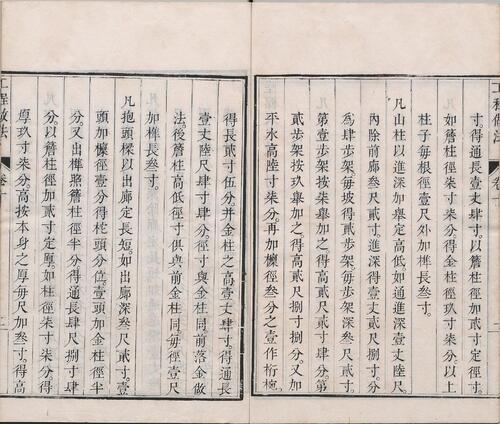 工程做法
卷十
寸.得通長壹丈肆寸.以簷柱徑加貳寸定徑寸.
如簷柱徑柒寸柒分.得金柱徑玖寸柒分.以上
柱子每根徑壹尺外加榫長叁寸.
凡山柱以進深加舉定高低.如通進深壹丈陸尺.
內除前廊叁尺貳寸.進深得壹丈貳尺捌寸.分
為肆步架.每坡得貳步架.每步架深叁尺貳寸.
第壹步架按柒舉加之.得高貳尺貳寸肆分.第
貳步架按玖舉加之.得高貳尺捌寸捌分.又加
平水高陸寸柒分.再加檁徑叁分之壹作桁椀.
得長貳寸伍分.并金柱之高壹丈肆寸.得通長
壹丈陸尺肆寸肆分.徑寸與金柱同.前落金做
法.後簷柱高低徑寸俱與前金柱同.每徑壹尺
加榫長叁寸.
凡抱頭樑以出廊定長短.如出廊深叁尺貳寸.壹
頭加檁徑壹分得柁頭分位.壹頭加金柱徑半
分.又出榫照簷柱徑半分.得通長肆尺捌寸肆
分.以簷柱徑加貳寸定厚.如柱徑柒寸柒分.得
厚玖寸柒分.高按本身之厚每尺加叁寸.得高
工程做法
卷十